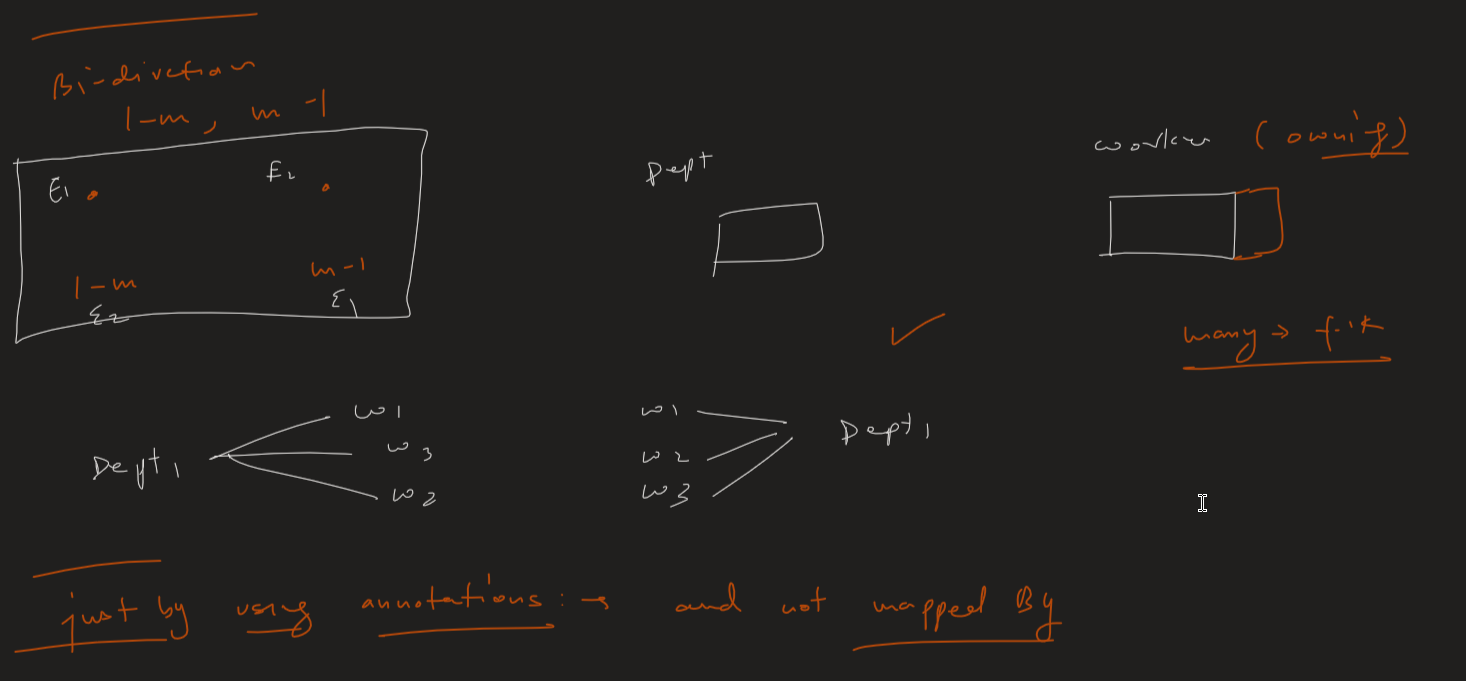 Bi-direction
1-m, m-1
E1 E2
1-m m-1
E2 E1
Dept
worker (owning)
many → f.k
Dept1
w1
w3
w2
w1
w2
w3
Dept1
just by using annotations: → and not mapped By